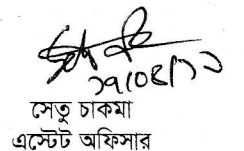 ২৭/০৪/২২
সেতু চাকমা
এস্টেট অফিসার